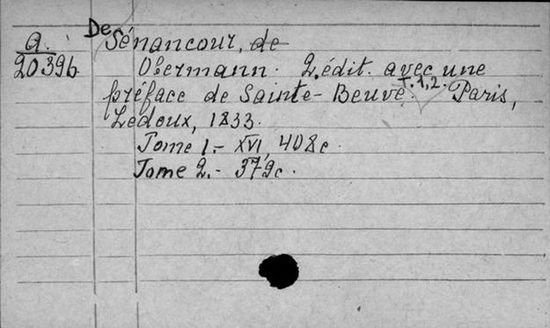 De Sénancour, de
a.
20396
Obermann. 2. édit. avec une
préface de Sainte-Beuve. T. 1, 2. Paris,
Ledoux, 1833.
Tome 1.- XVI, 408c.
Tome 2.- 379c.